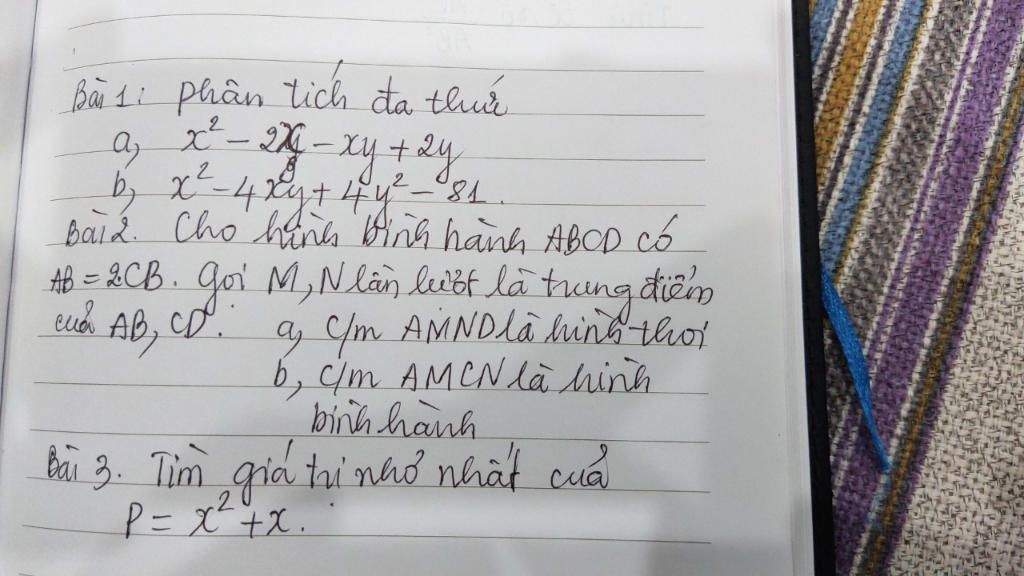 Bài 1: phân tích đa thức
a, x² - 2x - xy + 2y
b, x² - 4xy + 4y² - 81.
Bài 2. Cho hình bình hành ABCD có
AB = 2CB. Gọi M, N lần lượt là trung điểm
của AB, CD. a, C/m AMND là hình thoi
b, C/m AMCN là hình
bình hành
Bài 3. Tìm giá trị nhỏ nhất của
P = x² + x.